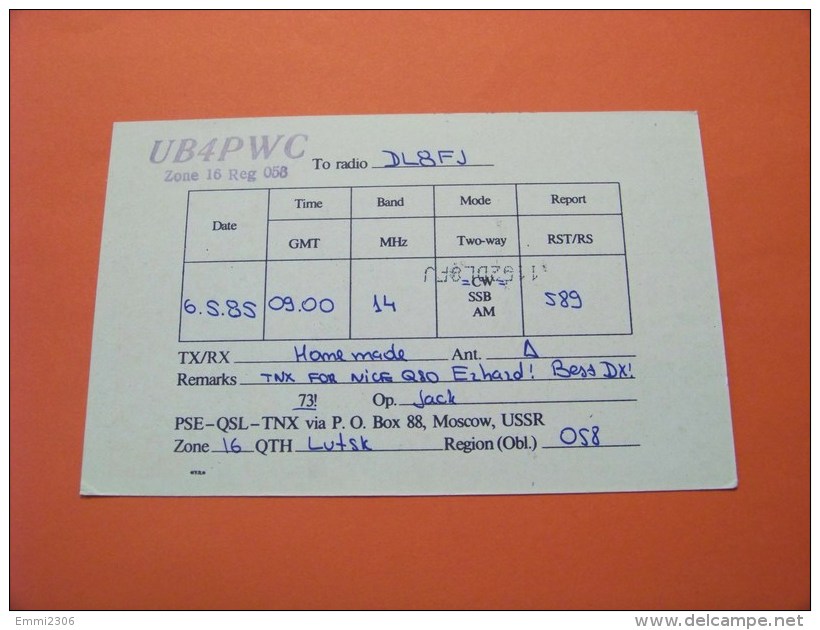 UB4PWC
Zone 16 Reg 058
To radio DL8FJ
Date Time Band Mode Report
GMT MHz Two-way RST/RS
6.5.85 09.00 14 =CW= SSB AM 589
TX/RX Home made Ant. Δ
Remarks TNX FOR NICE QSO Erhard! Best DX!
73! Op. Jack
PSE-QSL-TNX via P. O. Box 88, Moscow, USSR
Zone 16 QTH Lutsk Region (Obl.) 058
Emmi2306
delcampe.net